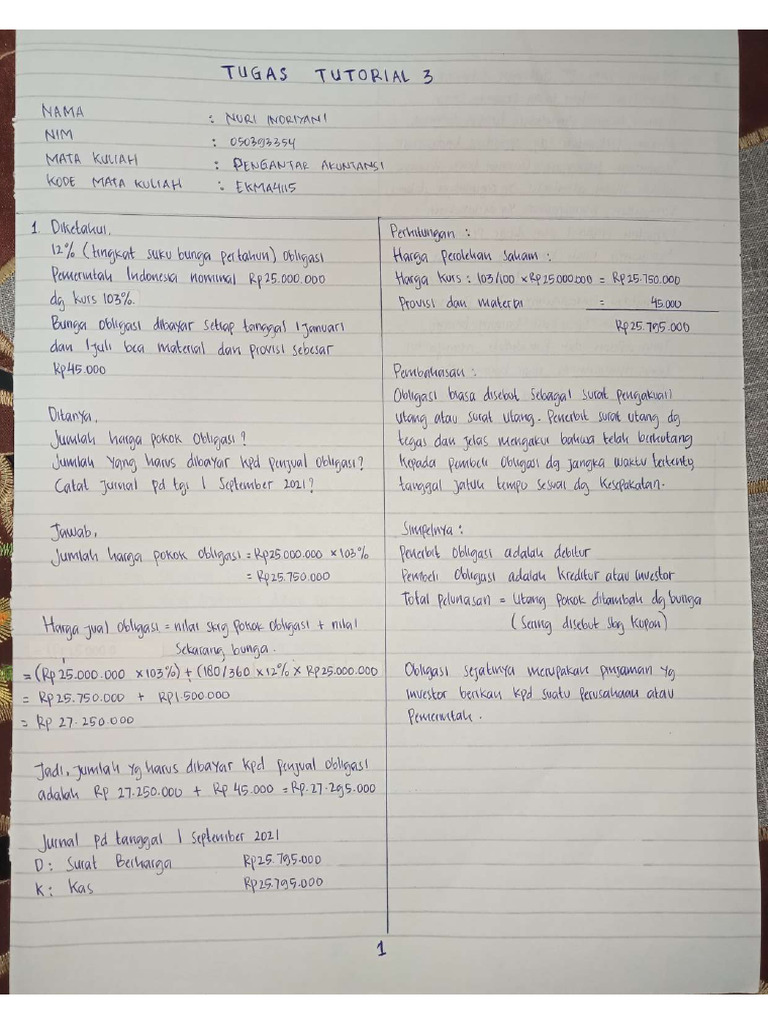 TUGAS TUTORIAL 3
NAMA : NURI INDRIYANI
NIM : 050393354
MATA KULIAH : PENGANTAR AKUNTANSI
KODE MATA KULIAH : EKMA4115
1. Diketahui,
12% (tingkat suku bunga pertahun) obligasi
Pemerintah Indonesia nominal Rp25.000.000
dg kurs 103%.
Bunga obligasi dibayar setiap tanggal 1 januari
dan 1 juli bea material dan provisi sebesar
Rp45.000
Ditanya,
Jumlah harga pokok obligasi?
Jumlah yang harus dibayar kpd penjual obligasi?
Catat jurnal pd tgl 1 September 2021?
Jawab,
Jumlah harga pokok obligasi = Rp25.000.000 x 103%
= Rp25.750.000
Harga jual obligasi = nilai skrg pokok obligasi + nilai
sekarang bunga.
= (Rp25.000.000 x 103%) + (180/360 x 12% x Rp25.000.000
= Rp25.750.000 + Rp1.500.000
= Rp 27.250.000
Jadi, jumlah yg harus dibayar kpd penjual obligasi
adalah Rp 27.250.000 + Rp 45.000 = Rp.27.295.000
Jurnal pd tanggal 1 September 2021
D: Surat Berharga Rp25.795.000
K: Kas Rp25.795.000
Perhitungan :
Harga perolehan saham :
Harga kurs : 103/100 x Rp25.000.000 = Rp25.750.000
Provisi dan materai = 45.000
Rp25.795.000
Pembahasan :
Obligasi biasa disebut sebagai surat pengakuan
utang atau surat utang. Penerbit surat utang dg
tegas dan jelas mengakui bahwa telah berhutang
kepada pembeli obligasi dg jangka waktu tertentu,
tanggal jatuh tempo sesuai dg kesepakatan.
Simpelnya :
Penerbit obligasi adalah debitur
Pembeli obligasi adalah kreditur atau investor
Total pelunasan = utang pokok ditambah dg bunga
(sering disebut sbg kupon)
Obligasi sejatinya merupakan pinjaman yg
investor berikan kpd suatu perusahaan atau
Pemerintah.
1